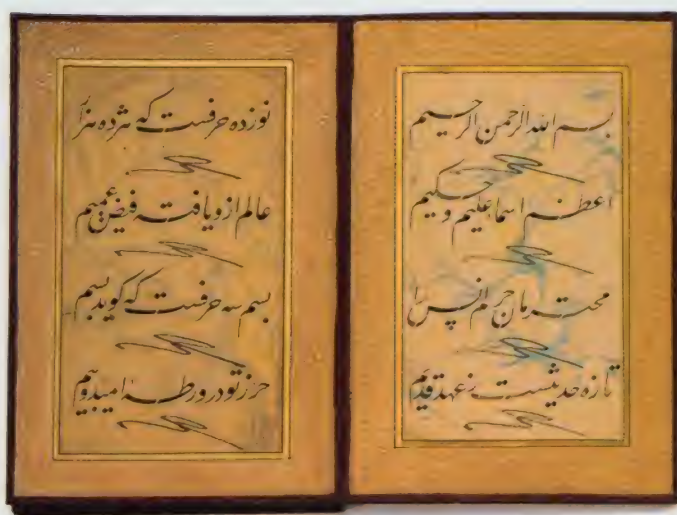 بسم الله الرحمن الرحیم
اعظم اسماء علیم و حکیم
محترمان حرم انس را
تازه حدیثست ز عهد قدیم
نوزده حرفست که هژده هزار
عالم ازو یافته فیض عمیم
بسم سه حرفست که کوید بسم
حرز تو در ورطهٔ امید و بیم